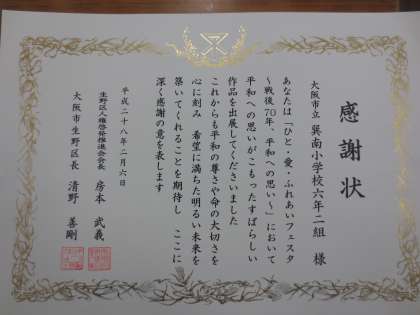 感謝状
大阪市立 巽南小学校六年二組 様
あなたは「ひと・愛・ふれあいフェスタ
～戦後70年、平和への思い～」において
平和への思いがこもったすばらしい
作品を出展してくださいました
これからも平和の尊さや命の大切さを
心に刻み 希望に満ちた明るい未来を
築いてくれることを期待し ここに
深く感謝の意を表します
平成二十八年二月六日
生野区人権啓発推進会会長 房本 武義
大阪市生野区長 清野 善剛